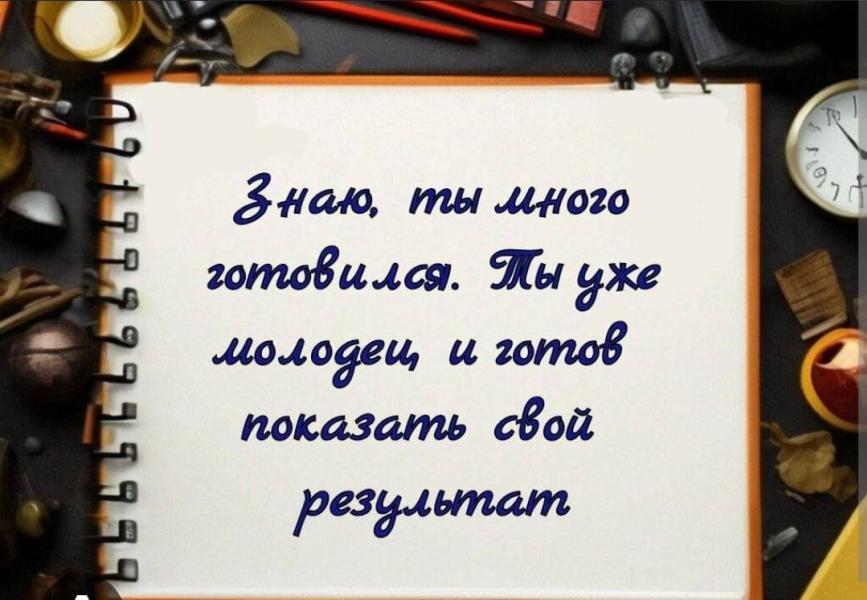 Знаю, ты много
готовился. Ты уже
молодец, и готов
показать свой
результат